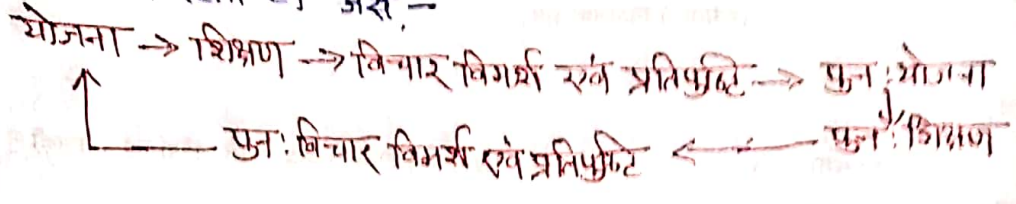 जैसे,-
योजना → शिक्षण → विचार विमर्श एवं प्रतिपुष्टि → पुनः योजना
पुनः विचार विमर्श एवं प्रतिपुष्टि ← पुनः शिक्षण